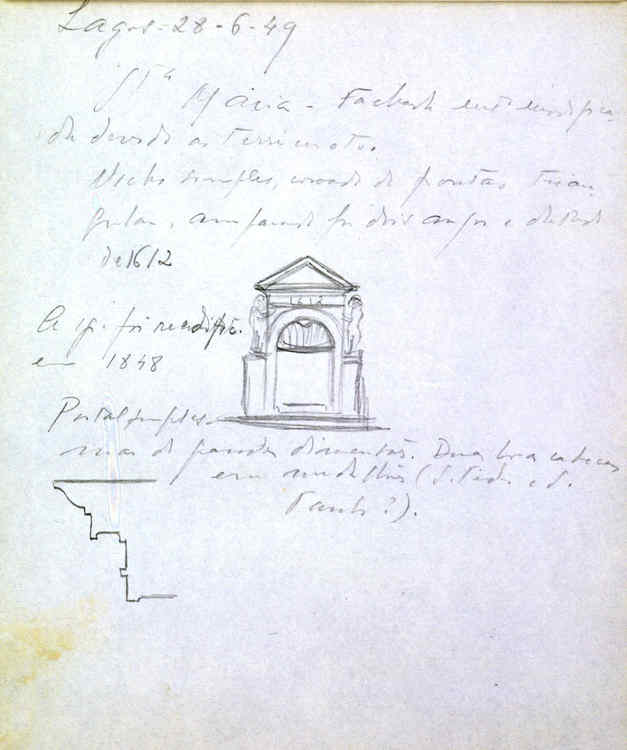 Lagos - 28-6-49
Stª Maria - Fachada muitº
da devido ao terramoto.
Nicho simples, coroado de frontão trian-
gular, amparado por dois anjos e datado
de 1612
1612
A ig. foi reedific.
em 1848
Portal simples
mas de grandes dimensões. Duas boas cabeças
em medalhões (S. Pedro e S.
Paulo?).